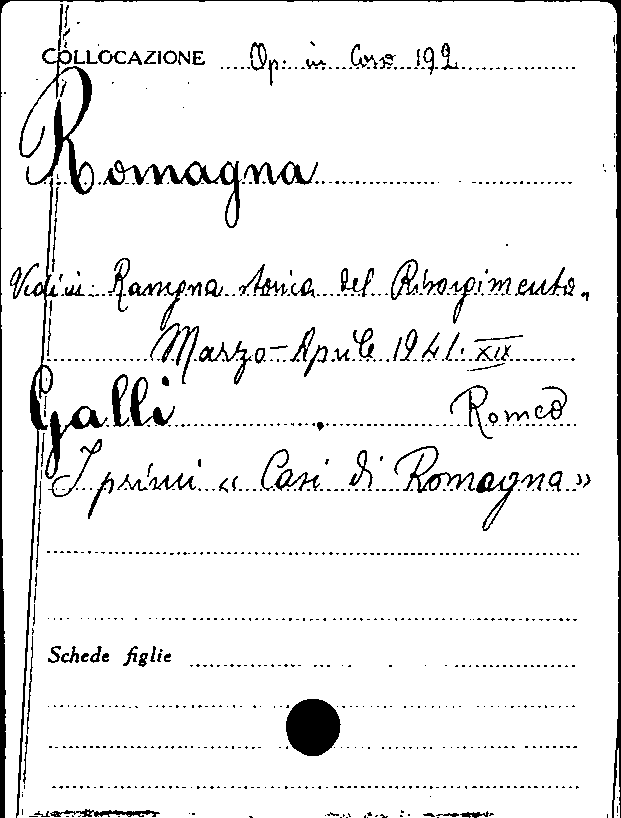 COLLOCAZIONE Op. in Corso 192
Romagna
Vedi in: Rassegna storica del Risorgimento"
Marzo-Aprile 1941. XIX
Galli Romeo
I primi « Casi di Romagna »
Schede figlie